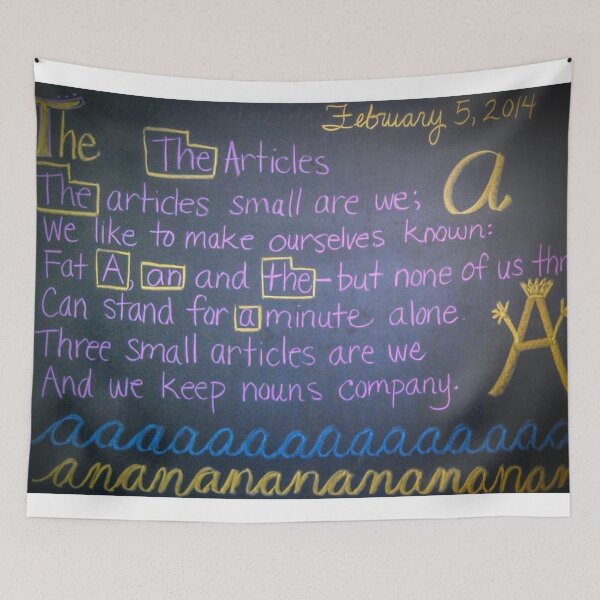 February 5, 2014
The The Articles
a
The articles small are we;
We like to make ourselves known:
Fat A, an and the - but none of us
Can stand for a minute alone.
A
Three small articles are we
And we keep nouns company.
aaaaaaaaaaaaaaa
anananananananan